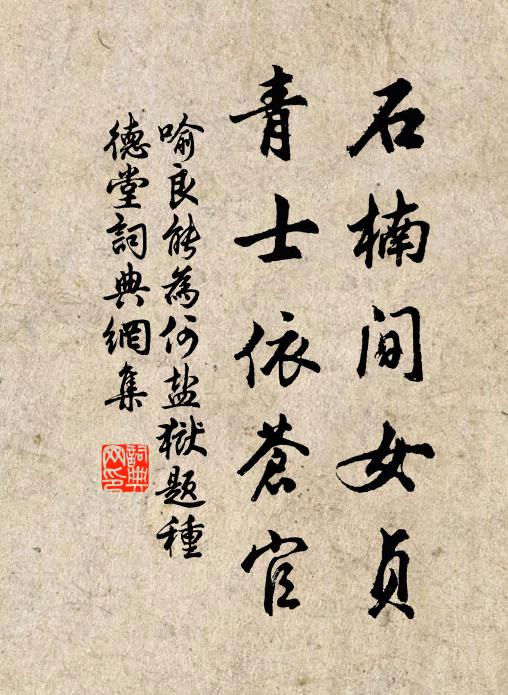 石楠间女贞
青士依苍官
喻良能为何盐狱题种
德堂詞典網集
詞典網印